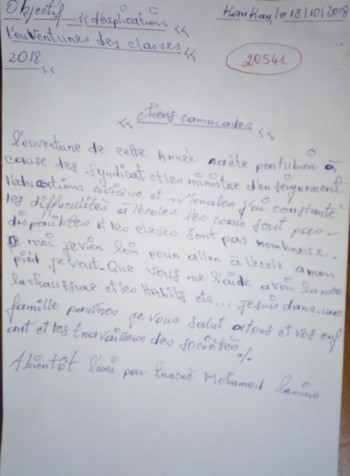 Objectif d'explication Kankan, le 18/10/2018
L'ouventunes des classes
2018
20541
« chens camarades »
l'ouventune de cette Année a été pentubien à
cause des syndicat et les ministre d'enseignement
l'éducations civique et j'ai constaté
les difficultés à l'école les cours sont pas
disponibles et les eleves sont pas nombreux.
moi je vien loin poun allen à l'école a mon
pied je veut-Que vous me l'aide avoi
la chaussure et les HAbits etc... je suis dans une
famille pauvres je vous salut atous et vos enf
ant et les travailleun des sociétés %
A bientôt l'ami par Mohamed lamine